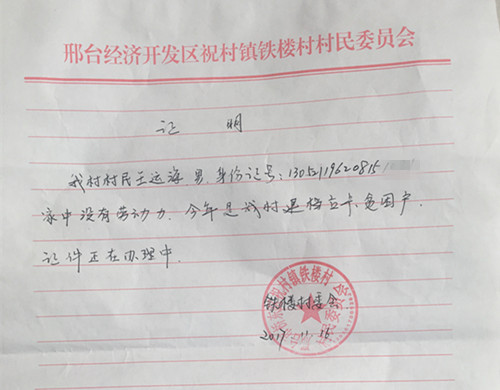 邢台经济开发区祝村镇铁楼村村民委员会
证 明
我村村民王运海,男,身份证号:13052119620815
家中没有劳动力.今年是我村建档立卡贫困户,
证件正在办理中.
铁楼村委会
2017.11.15